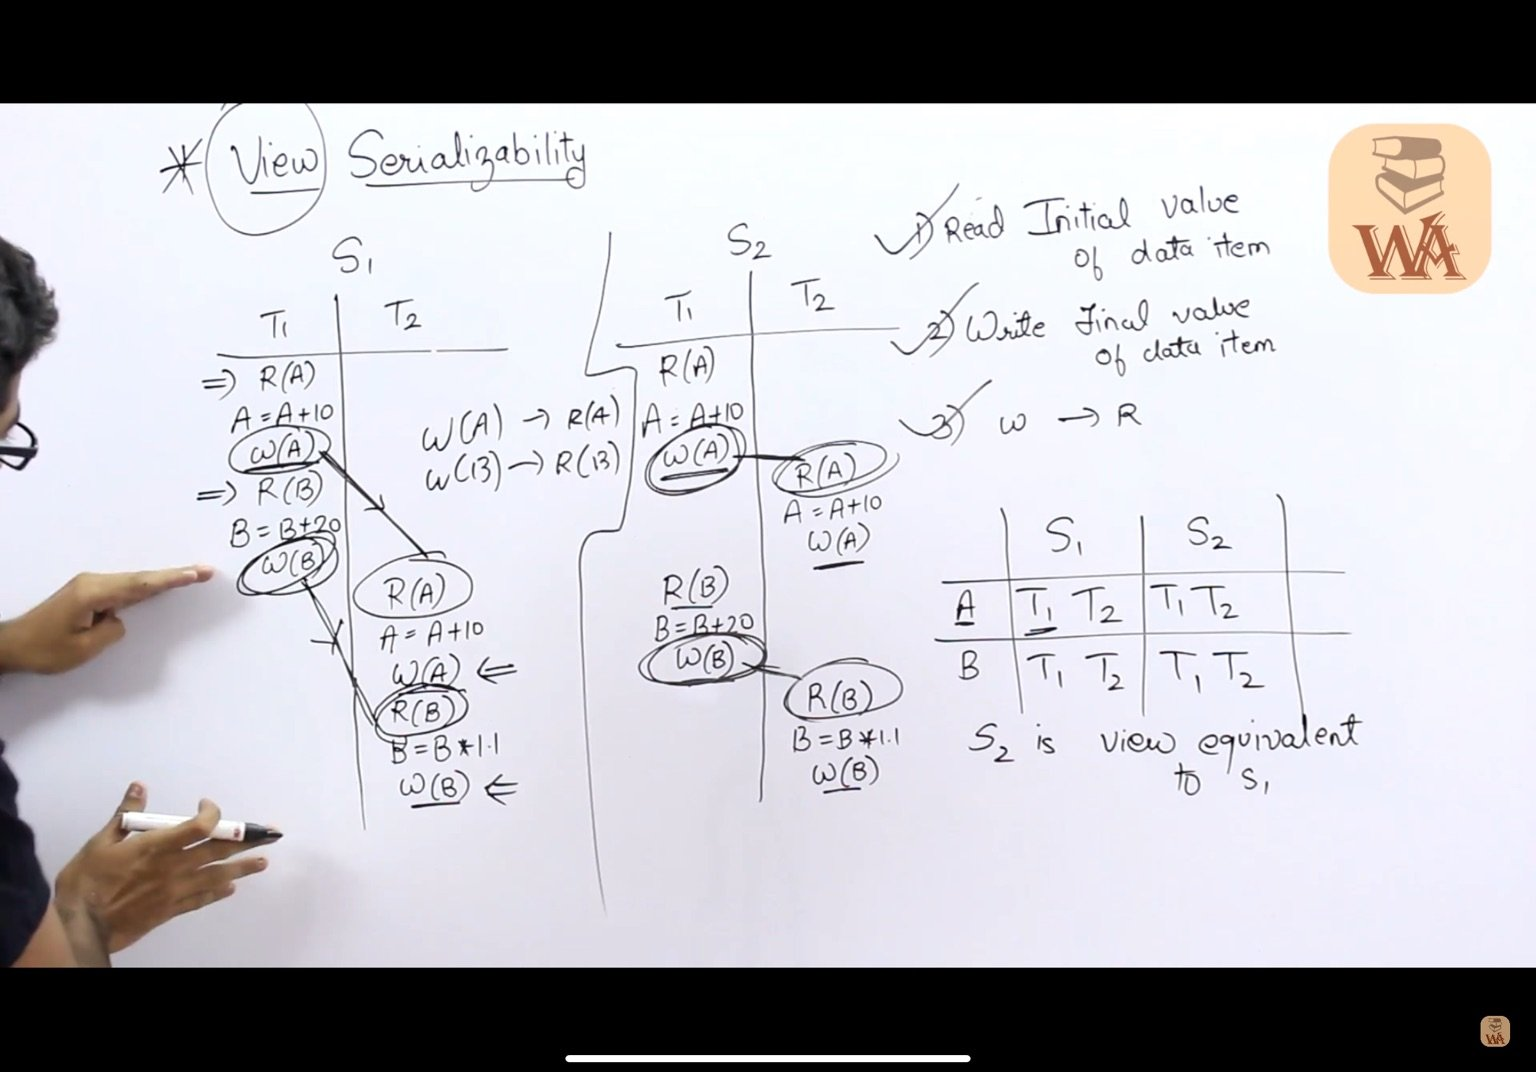 * View Serializability
S1
T1 T2
=> R(A)
A = A+10
W(A)
=> R(B)
B = B+20
W(B)
R(A)
A = A+10
W(A) ⇐
R(B)
B = B*1.1
W(B) ⇐
W(A) → R(A)
W(B) → R(B)
S2
T1 T2
R(A)
A = A+10
W(A)
R(A)
A = A+10
W(A)
R(B)
B = B+20
W(B)
R(B)
B = B*1.1
W(B)
1) Read Initial value
of data item
2) Write Final value
of data item
3) W → R
S1 S2
A T1 T2 T1 T2
B T1 T2 T1 T2
S2 is view equivalent
to S1
WA
WA